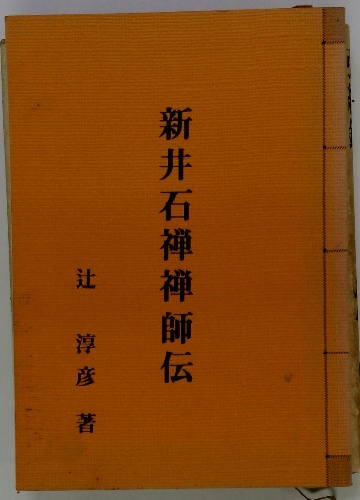 新井石禅禅師伝
辻淳彦著